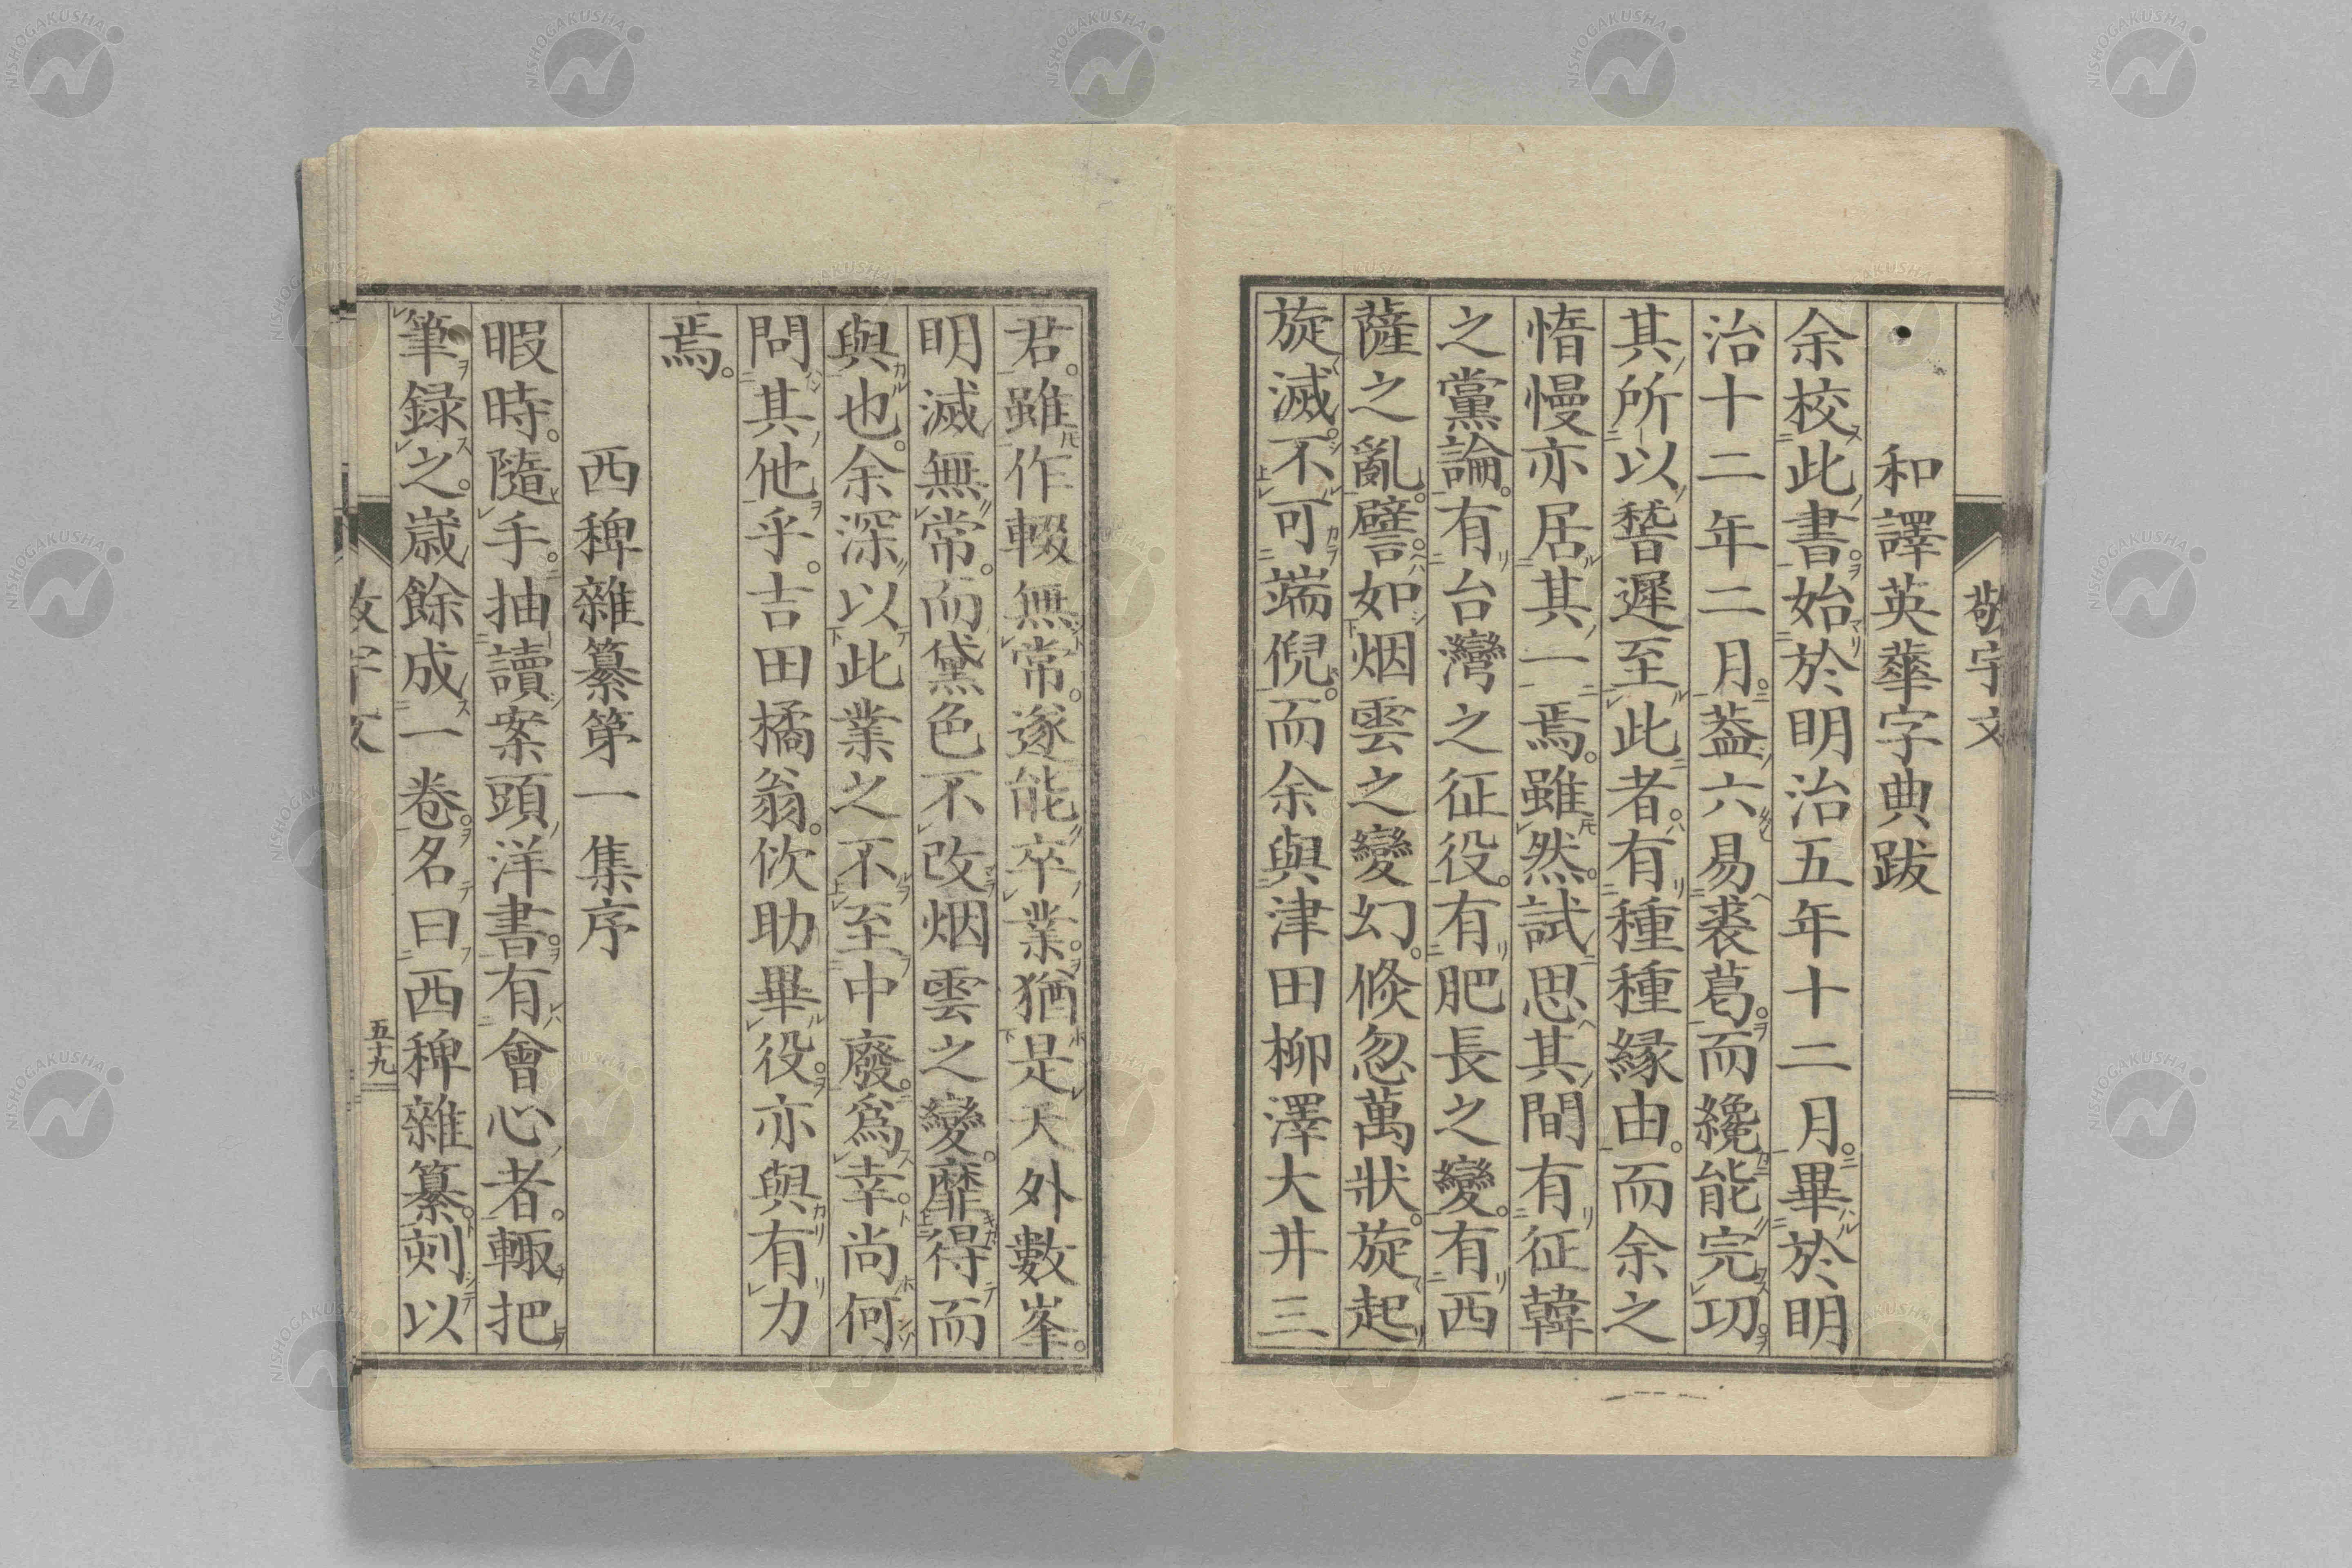 敬宇文
和譯英華字典跋
余校此書。始於明治五年十二月。畢於明
治十二年二月。葢六易裘葛。而纔能完功。
其所以嵆遲至此者。有種種緣由。而余之
惰慢亦居其一焉。雖然。試思其間有征韓
之黨論。有台灣之征役。有肥長之變。有西
薩之亂。譬如烟雲之變幻。倏忽萬狀。旋起
旋滅。不可端倪。而余與津田柳澤大井三
君。雖作輟無常。遂能卒業。猶是天外數峯。
明滅無常。而黛色不改烟雲之變。靡得而
與也。余深以此業之不至中廢。爲幸。尚何
問其他乎。吉田橘翁。佽助畢役。亦與有力
焉。
西稗雜纂第一集序
暇時。隨手。抽讀案頭洋書。有會心者。輙把
筆錄之。嵗餘成一卷。名曰西稗雜纂。刻以
敬宇文
五十九
NISHOGAKUSHA